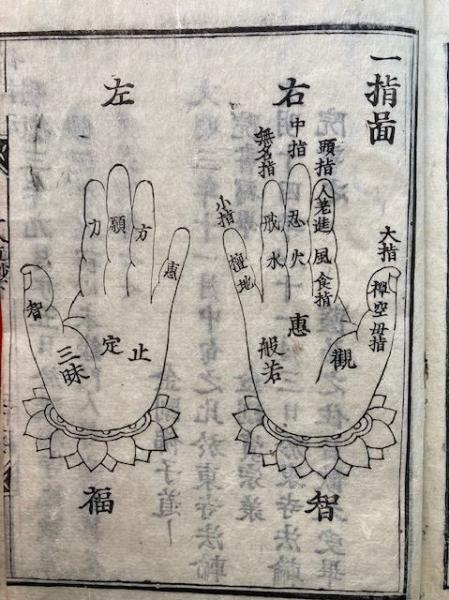 一指啚
右
大指
禪空母指
頭指
進風食指
中指
忍火
無名指
戒水
小指
檀地
觀
惠
般若
智
左
惠
方
願
力
智
止
定
三昧
福